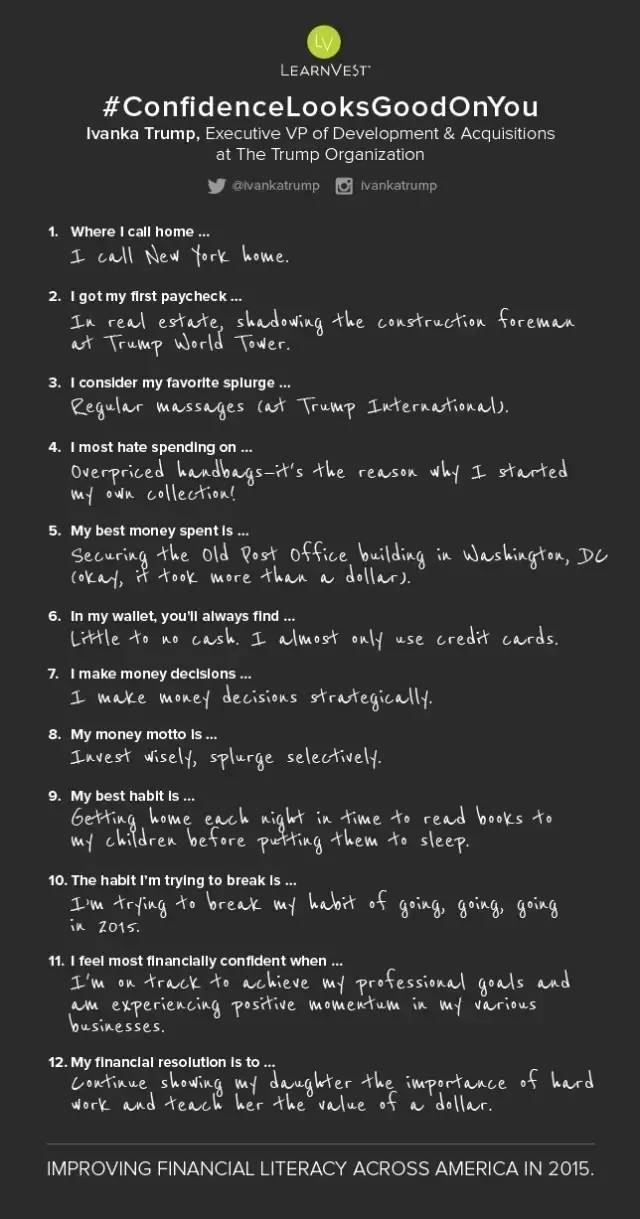 LV
LEARNVEST™
#ConfidenceLooksGoodOnYou
Ivanka Trump, Executive VP of Development & Acquisitions
at The Trump Organization
@ivankatrump ivankatrump
1. Where I call home ...
I call New York home.
2. I got my first paycheck ...
In real estate, shadowing the construction foreman
at Trump World Tower.
3. I consider my favorite splurge ...
Regular massages (at Trump International).
4. I most hate spending on ...
Overpriced handbags—it's the reason why I started
my own collection!
5. My best money spent is ...
Securing the Old Post Office building in Washington, DC
(okay, it took more than a dollar).
6. In my wallet, you'll always find ...
Little to no cash. I almost only use credit cards.
7. I make money decisions ...
I make money decisions strategically.
8. My money motto is ...
Invest wisely, splurge selectively.
9. My best habit is ...
Getting home each night in time to read books to
my children before putting them to sleep.
10. The habit I'm trying to break is ...
I'm trying to break my habit of going, going, going
in 2015.
11. I feel most financially confident when ...
I'm on track to achieve my professional goals and
am experiencing positive momentum in my various
businesses.
12. My financial resolution is to ...
Continue showing my daughter the importance of hard
work and teach her the value of a dollar.
IMPROVING FINANCIAL LITERACY ACROSS AMERICA IN 2015.